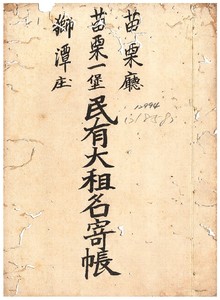 苗栗廳
苗栗一堡
獅潭庄
民有大租名寄帳